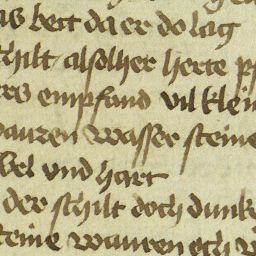 as bett da er do lag
schilt alsolher herte pf
ers empfand vil klein
wauren wasser steine
bel vnd hart
der schilt doch dunk
steine wauren ech w